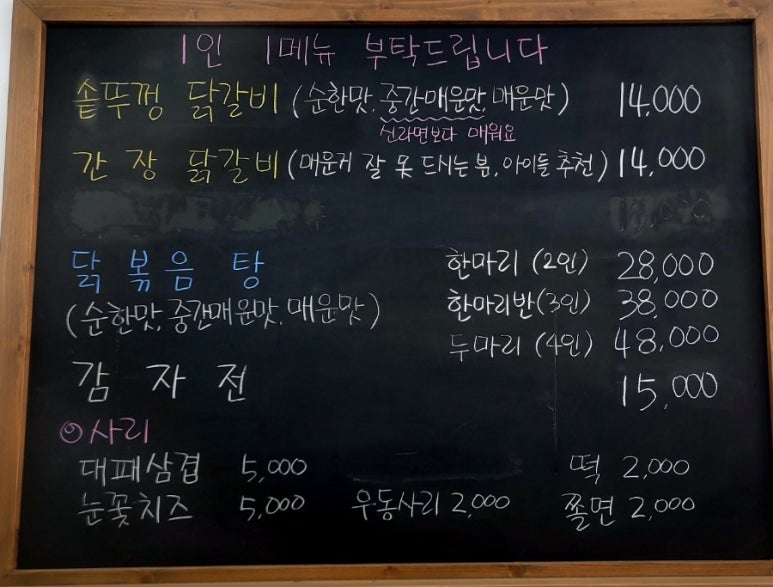 1인 1메뉴 부탁드립니다
솥뚜껑 닭갈비 (순한맛, 중간매운맛, 매운맛) 14,000
신라면보다 매워요
간장 닭갈비 (매운거 잘 못 드시는 분, 아이들 추천) 14,000
닭볶음탕 한마리 (2인) 28,000
(순한맛, 중간매운맛, 매운맛) 한마리반(3인) 38,000
두마리 (4인) 48,000
감자전 15,000
⊙사리
대패삼겹 5,000 떡 2,000
눈꽃치즈 5,000 우동사리 2,000 쫄면 2,000